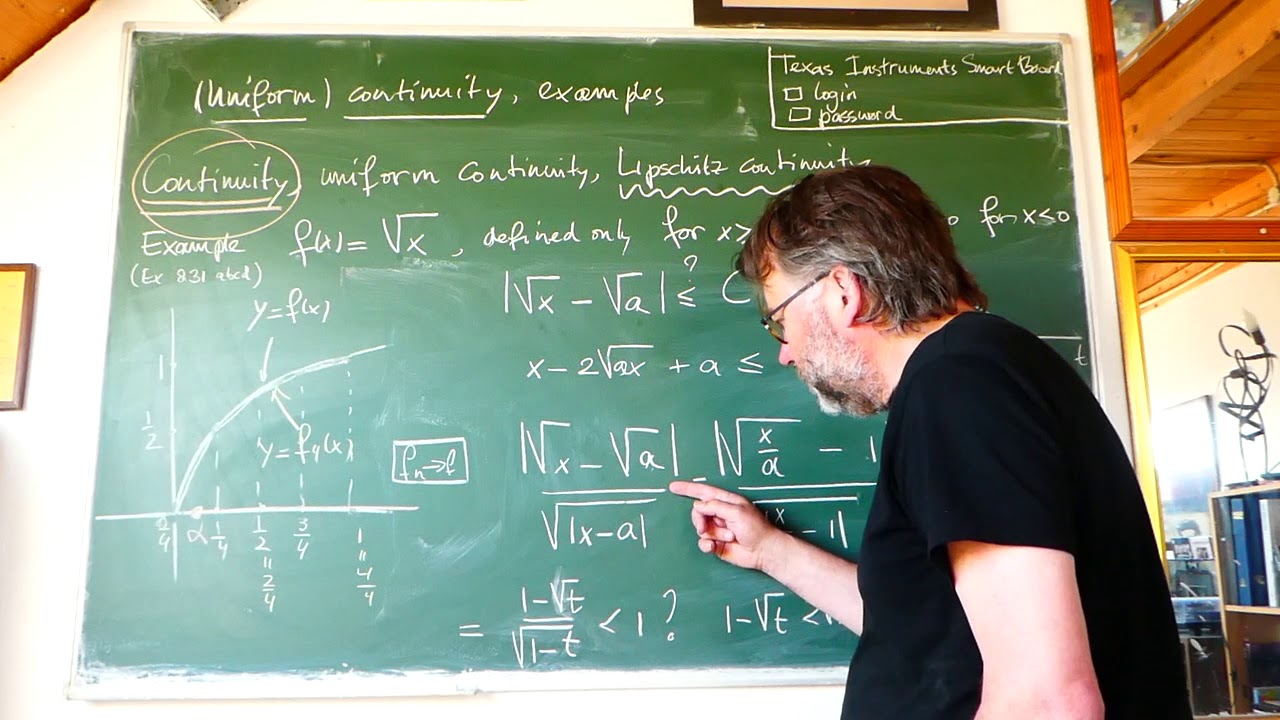 (Uniform) continuity, examples
Texas Instruments SmartBoard
login
password
Continuity, uniform continuity, Lipschitz continuity
Example f(x) = √x, defined only for x> for x≤0
(Ex 831 abcd)
|√x − √a| ≤? C
y=f(x)
x − 2√ax + a ≤
t
1
1/2
y=f₄(x)
fₙ→f
|√x − √a| / √|x−a| = |√(x/a) − 1| / √|x/a − 1|
0/4 α 1/4 1/2 = 2/4 3/4 1 = 4/4
= (1−√t)/√(1−t) < 1? 1−√t <